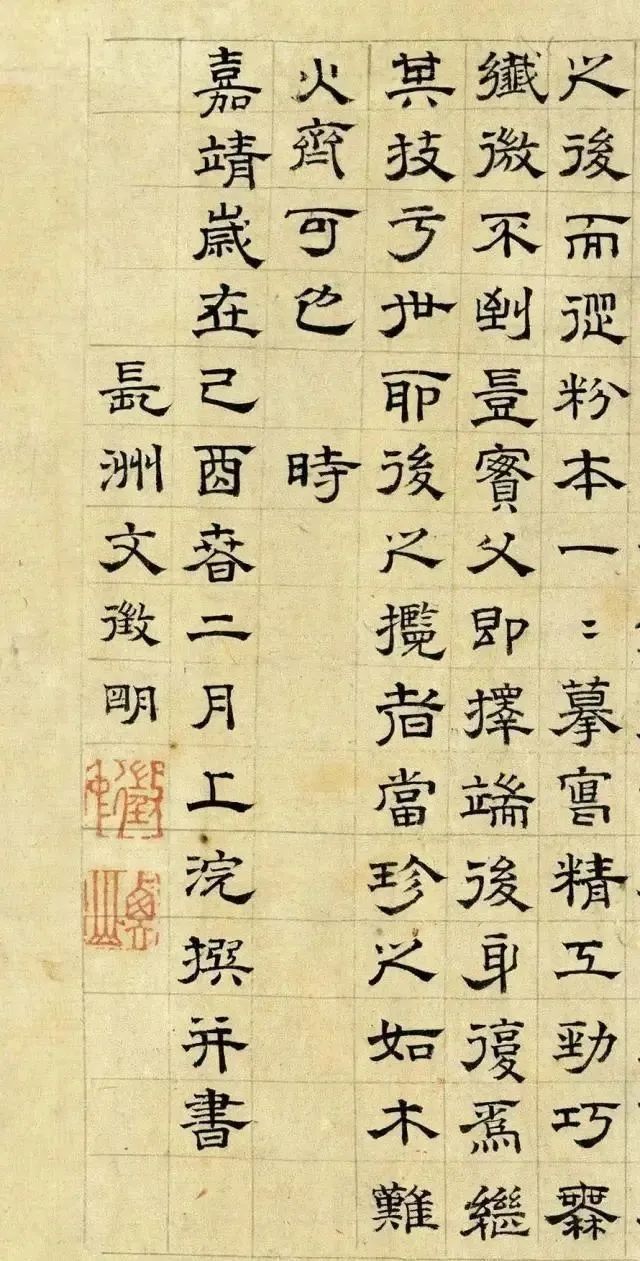 之後而從粉本一〻摹寫精工勁巧橆
纖微不到豈實父即擇端後身復爲繼
其技亏世耶後之攬者當珍之如木難
火齊可也 時
嘉靖歲在己酉春二月上浣撰并書
長洲文徵明